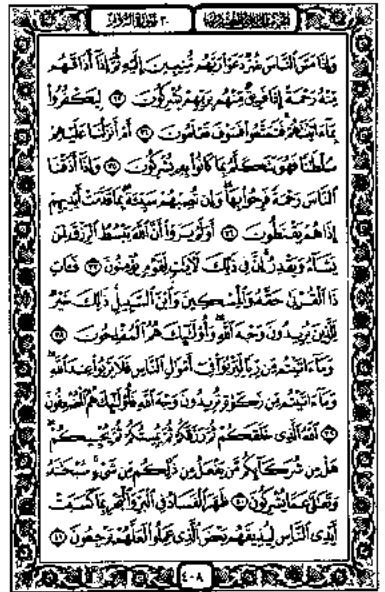 الجزء الحادي والعشرون ٣٠ سورة الروم
وَإِذَا مَسَّ ٱلنَّاسَ ضُرٌّ دَعَوْا۟ رَبَّهُم مُّنِيبِينَ إِلَيْهِ ثُمَّ إِذَآ أَذَاقَهُم
مِّنْهُ رَحْمَةً إِذَا فَرِيقٌ مِّنْهُم بِرَبِّهِمْ يُشْرِكُونَ ٣٣ لِيَكْفُرُوا۟
بِمَآ ءَاتَيْنَٰهُمْ فَتَمَتَّعُوا۟ فَسَوْفَ تَعْلَمُونَ ٣٤ أَمْ أَنزَلْنَا عَلَيْهِمْ
سُلْطَٰنًا فَهُوَ يَتَكَلَّمُ بِمَا كَانُوا۟ بِهِۦ يُشْرِكُونَ ٣٥ وَإِذَآ أَذَقْنَا
ٱلنَّاسَ رَحْمَةً فَرِحُوا۟ بِهَا وَإِن تُصِبْهُمْ سَيِّئَةٌۢ بِمَا قَدَّمَتْ أَيْدِيهِمْ
إِذَا هُمْ يَقْنَطُونَ ٣٦ أَوَلَمْ يَرَوْا۟ أَنَّ ٱللَّهَ يَبْسُطُ ٱلرِّزْقَ لِمَن
يَشَآءُ وَيَقْدِرُ إِنَّ فِى ذَٰلِكَ لَءَايَٰتٍ لِّقَوْمٍ يُؤْمِنُونَ ٣٧ فَـَٔاتِ
ذَا ٱلْقُرْبَىٰ حَقَّهُۥ وَٱلْمِسْكِينَ وَٱبْنَ ٱلسَّبِيلِ ذَٰلِكَ خَيْرٌ
لِّلَّذِينَ يُرِيدُونَ وَجْهَ ٱللَّهِ وَأُو۟لَٰٓئِكَ هُمُ ٱلْمُفْلِحُونَ ٣٨
وَمَآ ءَاتَيْتُم مِّن رِّبًا لِّيَرْبُوَا۟ فِىٓ أَمْوَٰلِ ٱلنَّاسِ فَلَا يَرْبُوا۟ عِندَ ٱللَّهِ
وَمَآ ءَاتَيْتُم مِّن زَكَوٰةٍ تُرِيدُونَ وَجْهَ ٱللَّهِ فَأُو۟لَٰٓئِكَ هُمُ ٱلْمُضْعِفُونَ
٣٩ ٱللَّهُ ٱلَّذِى خَلَقَكُمْ ثُمَّ رَزَقَكُمْ ثُمَّ يُمِيتُكُمْ ثُمَّ يُحْيِيكُمْ
هَلْ مِن شُرَكَآئِكُم مَّن يَفْعَلُ مِن ذَٰلِكُم مِّن شَىْءٍ سُبْحَٰنَهُۥ
وَتَعَٰلَىٰ عَمَّا يُشْرِكُونَ ٤٠ ظَهَرَ ٱلْفَسَادُ فِى ٱلْبَرِّ وَٱلْبَحْرِ بِمَا كَسَبَتْ
أَيْدِى ٱلنَّاسِ لِيُذِيقَهُم بَعْضَ ٱلَّذِى عَمِلُوا۟ لَعَلَّهُمْ يَرْجِعُونَ ٤١
٤٠٨